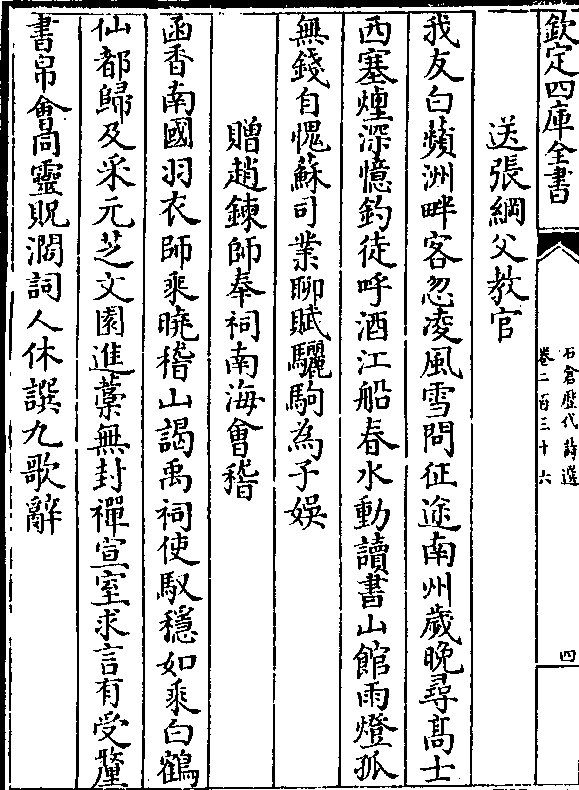 欽定四庫全書
石倉歷代詩選
卷二百三十六
四
送張綱父教官
我友白蘋洲畔客忽凌風雪問征途南州歲晚尋髙士
西塞煙深憶釣徒呼酒江船春水動讀書山館雨燈孤
無錢自愧蘇司業聊賦驪駒為子娛
贈趙鍊師奉祠南海會稽
函香南國羽衣師乘曉稽山謁禹祠使馭穩如乘白鶴
仙都歸及采元芝文園進藁無封禪宣室求言有受釐
書帛會同靈貺濶詞人休譔九歌辭